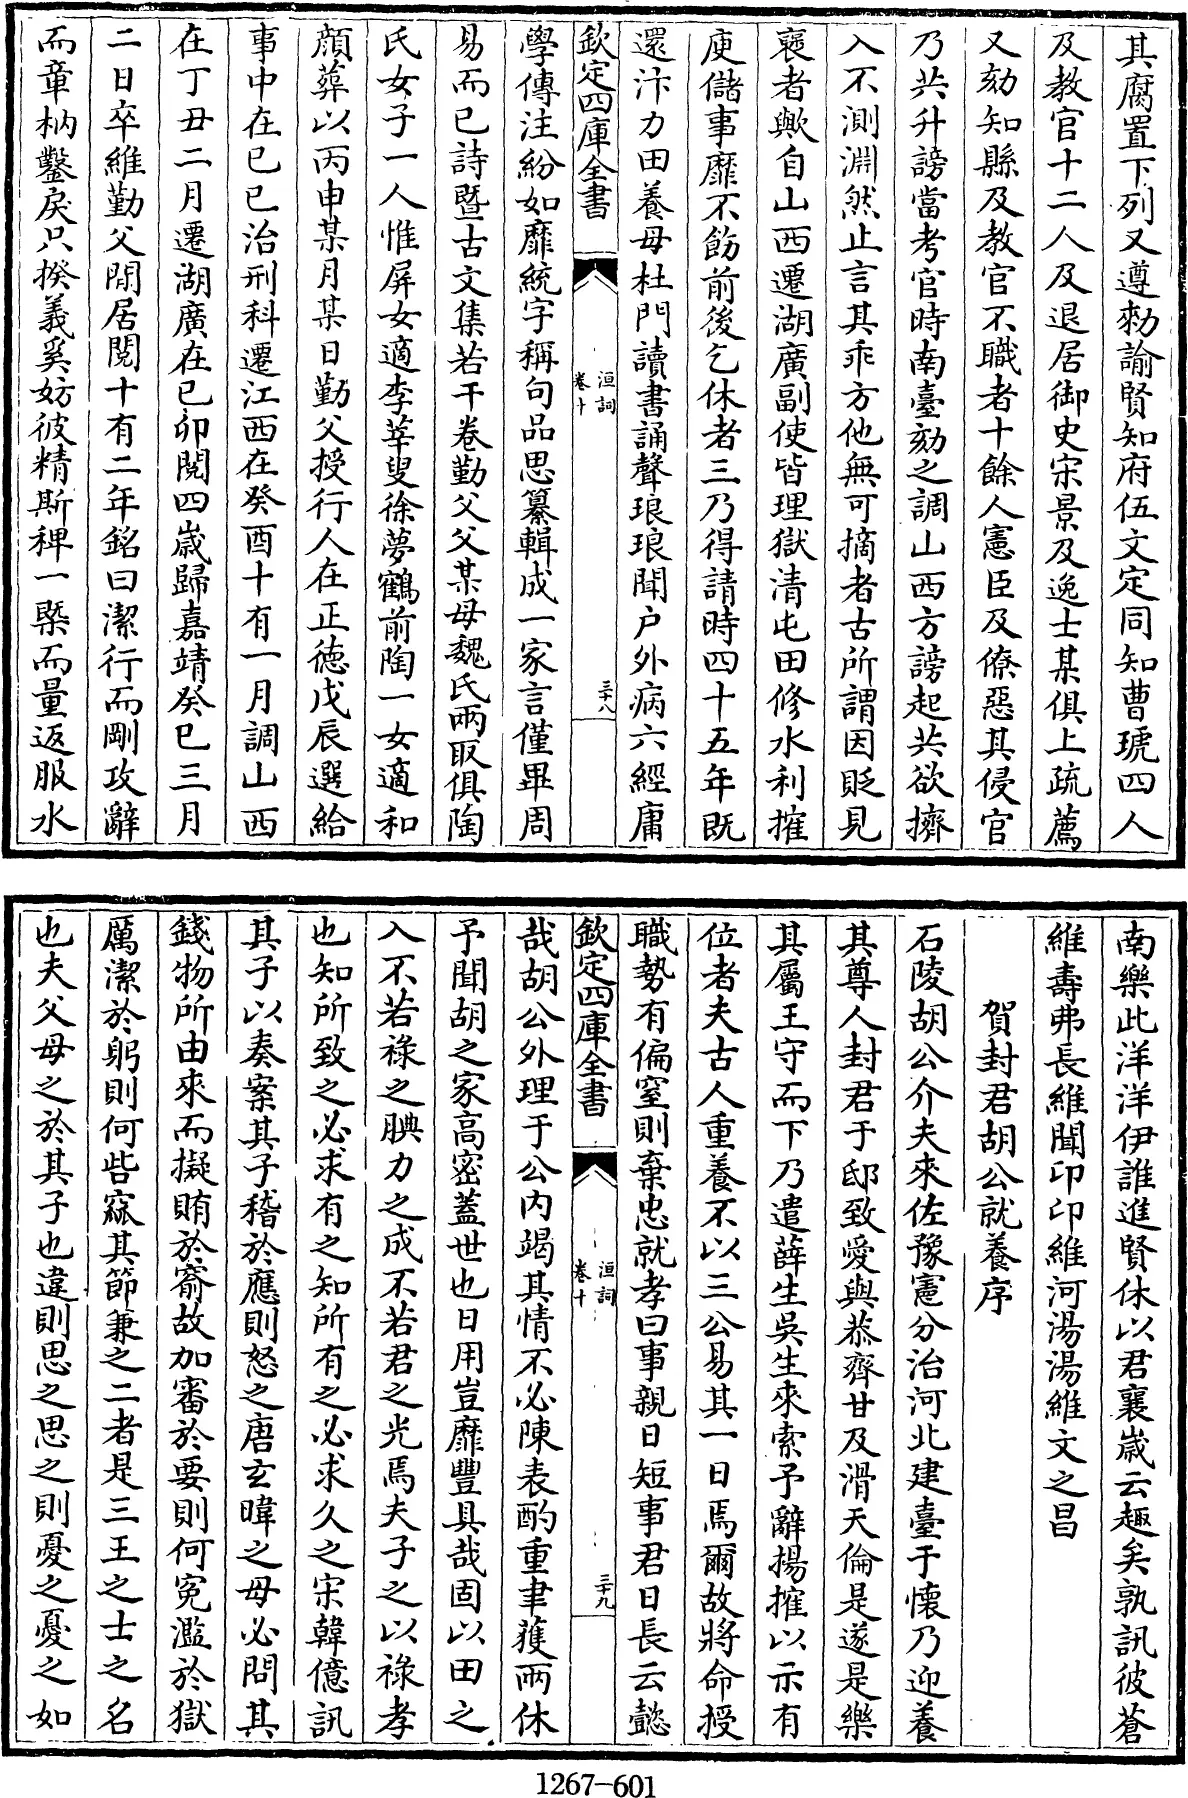 其腐置下列又遵勑諭賢知府伍文定同知曹琥四人
及教官十二人及退居御史宋景及逸士某俱上疏薦
又劾知縣及教官不職者十餘人憲臣及僚惡其侵官
乃共升謗當考官時南臺劾之調山西方謗起共欲擠
入不測淵然止言其乖方他無可摘者古所謂因貶見
襃者歟自山西遷湖廣副使皆理獄清屯田修水利搉
庾儲事靡不飭前後乞休者三乃得請時四十五年既
還汴力田養母杜門讀書誦聲琅琅聞户外病六經庸
欽定四庫全書
洹詞
卷十
三十八
學傳注紛如靡統字稱句品思纂輯成一家言僅畢周
易而已詩暨古文集若干卷勤父父某母魏氏兩取俱陶
氏女子一人惟屏女適李莘叟徐夢鶴前陶一女適和
顔葬以丙申某月某日勤父授行人在正徳戊辰選給
事中在已已治刑科遷江西在癸酉十有一月調山西
在丁丑二月遷湖廣在已卯閲四歲歸嘉靖癸巳三月
二日卒維勤父閒居閲十有二年銘曰潔行而剛攻辭
而章枘鑿戾只揆義奚妨彼精斯稗一槩而量返服水
南樂此洋洋伊誰進賢休以君襄歲云趣矣孰訊彼蒼
維壽弗長維聞卬卬維河湯湯維文之昌
賀封君胡公就養序
石陵胡公介夫來佐豫憲分治河北建臺于懷乃迎養
其尊人封君于邸致愛與恭齊甘及滑天倫是遂是樂
其屬王守而下乃遣薛生吳生來索予辭揚搉以示有
位者夫古人重養不以三公易其一日焉爾故將命授
職勢有偏窒則棄忠就孝曰事親日短事君日長云懿
欽定四庫全書
洹詞
卷十
三十九
哉胡公外理于公内竭其情不必陳表酌重聿獲兩休
予聞胡之家高密蓋世也日用豈靡豐具哉固以田之
入不若祿之腆力之成不若君之光焉夫子之以祿孝
也知所致之必求有之知所有之必求久之宋韓億訊
其子以奏案其子稽於應則怒之唐玄暐之母必問其
錢物所由來而擬賄於窬故加審於要則何冤濫於獄
厲潔於躬則何呰窳其節兼之二者是三王之士之名
也夫父母之於其子也違則思之思之則憂之憂之如
1267-601